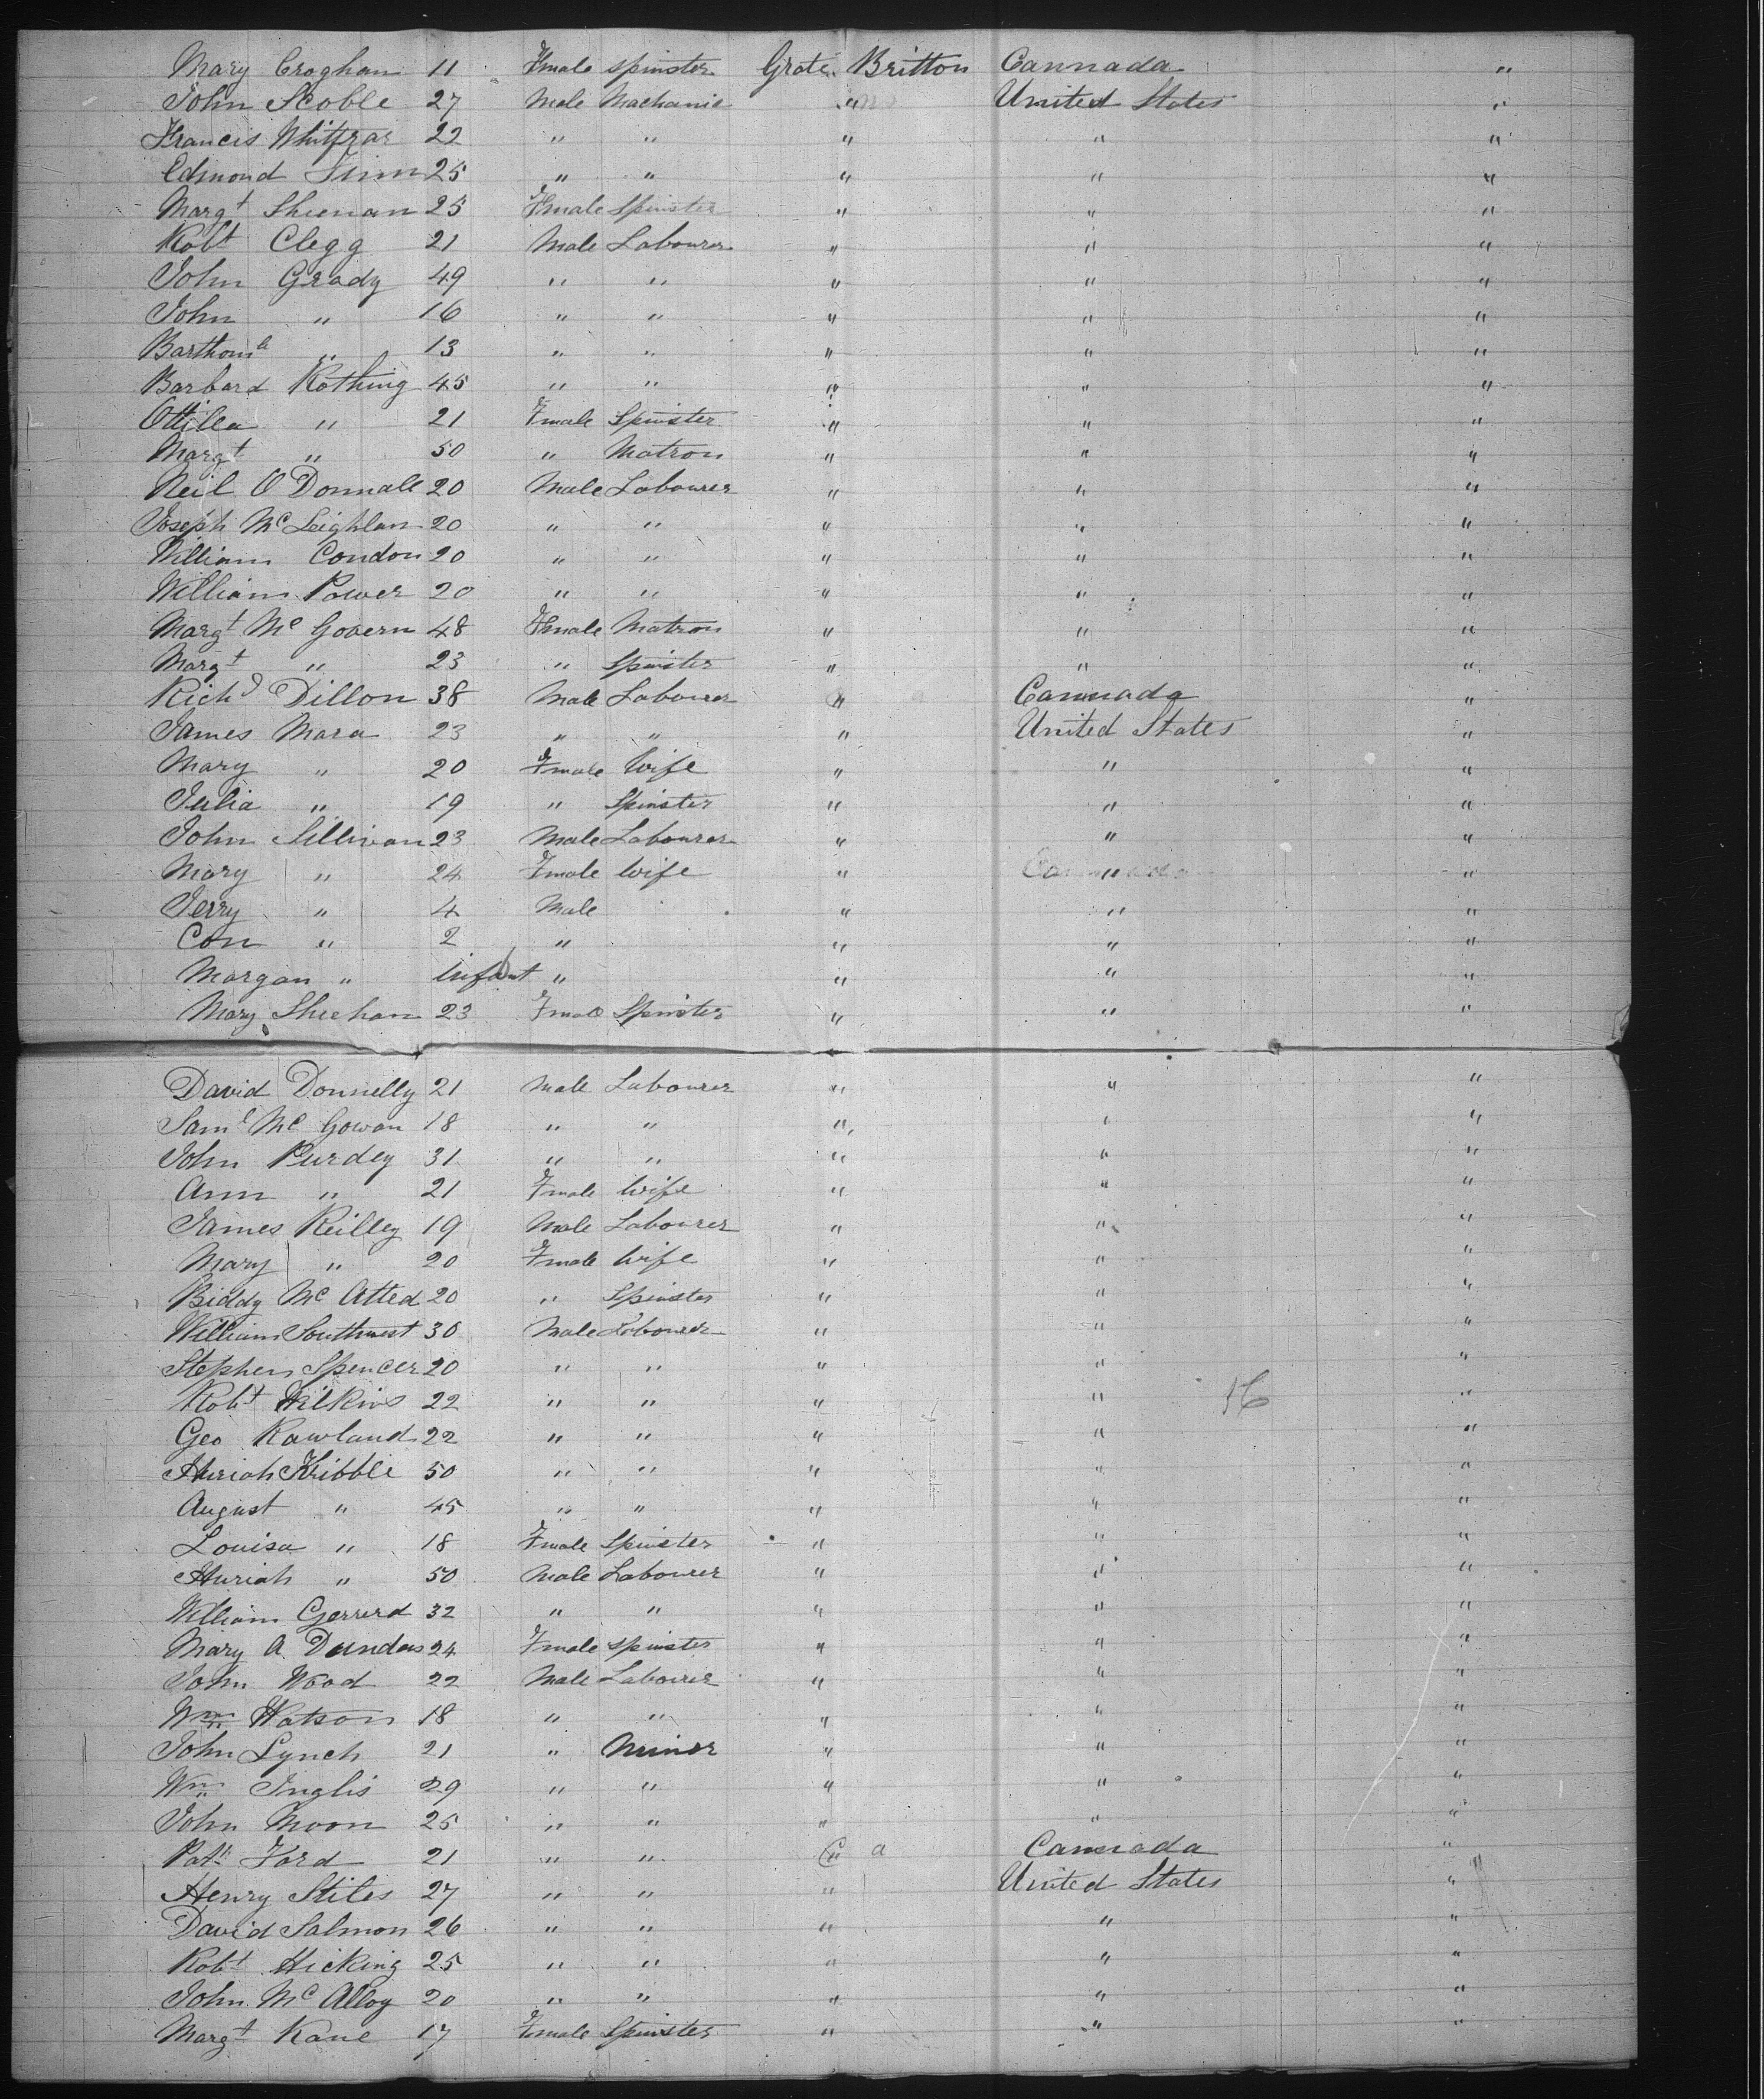 Mary Croghan 11 Female Spinster Grate Britton Cannada "
John Scoble 27 Male Machanic " United States "
Francis Whitfrar 22 " " " " "
Edmond Finn 25 " " " " "
Margt Sheenan 25 Female Spinster " " "
Robt Clegg 21 Male Labourer " " "
John Grady 49 " " " " "
John " 16 " " " " "
Barthomle " 13 " " " " "
Barbard Rothing 45 " " " " "
Ottilla " 21 Female Spinster " " "
Margt " 50 " Matron " " "
Neil O Donnall 20 Male Labourer " " "
Joseph Mc Leighlan 20 " " " " "
William Condon 20 " " " " "
William Power 20 " " " " "
Margt Mc Govern 48 Female Matron " " "
Margt " 23 " Spinster " " "
Richd Dillon 38 Male Labourer " Cannada "
James Mara 23 " " " United States "
Mary " 20 Female Wife " " "
Julia " 19 " Spinster " " "
John Sillivan 23 Male Labourer " " "
Mary " 24 Female Wife " " "
Jerry " 4 Male " " "
Con " 2 " " " "
Morgan " Infant " " " "
Mary Sheehan 23 Female Spinster " " "
David Donnelly 21 Male Labourer " " "
Saml Mc Gowan 18 " " " " "
John Purdey 31 " " " " "
Ann " 21 Female Wife " " "
James Reilley 19 Male Labourer " " "
Mary " 20 Female Wife " " "
Biddy Mc Atted 20 " Spinster " " "
William Southwest 30 Male Labourer " " "
Stephen Spencer 20 " " " " "
Robt Wilkins 22 " " " " 16 "
Geo Rawland 22 " " " " "
Huriah Kribble 50 " " " " "
August " 45 " " " " "
Louisa " 18 Female Spinster " " "
Huriah " 50 Male Labourer " " "
William Gerrerd 32 " " " " "
Mary A. Dundas 24 Female Spinster " " "
John Wood 22 Male Labourer " " "
Wm Watson 18 " " " " "
John Lynch 21 " Minor " " "
Wm Inglis 29 " " " " "
John Moon 25 " " " " "
Patk Ford 21 " " " a Cannada "
Henry Stiles 27 " " " United States "
David Salmon 26 " " " " "
Robt Hicking 25 " " " " "
John Mc Alloy 20 " " " " "
Margt Kane 17 Female Spinster " " "